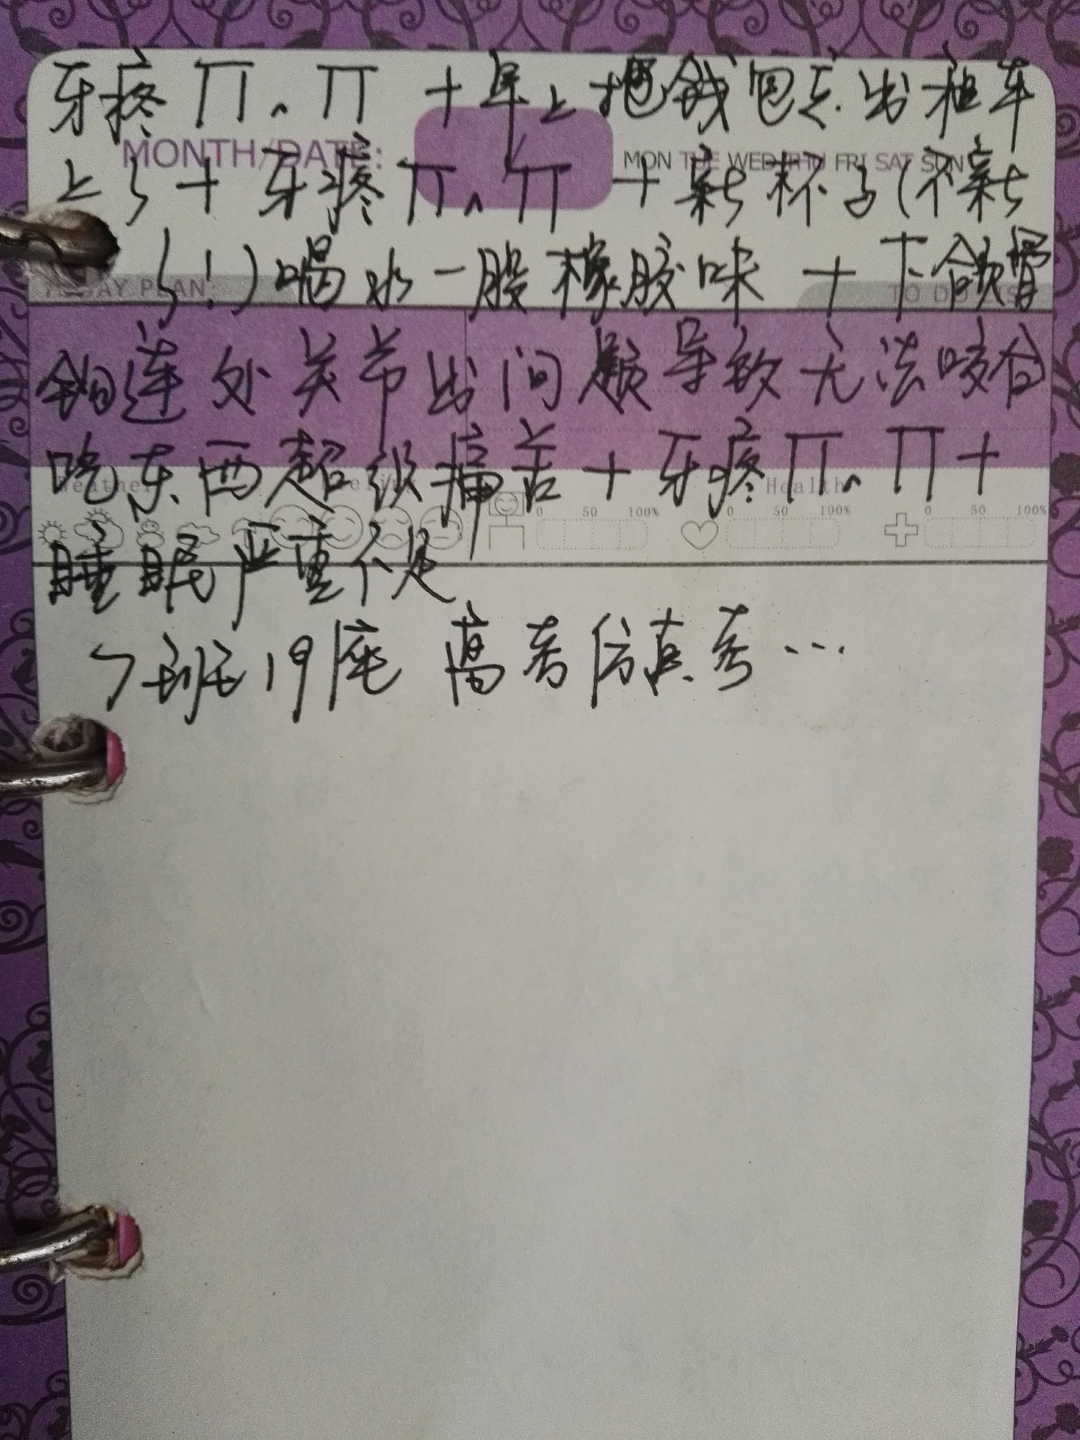 牙疼TT。TT + 早上把钱包忘出租车
MONTH/DATE:
MON TUE WED THU FRI SAT SUN
上了 + 牙疼TT。TT + 新杯子(不新
了!)喝水一股橡胶味 + 下颌骨
DAY PLAN:
TO DO LIST
钩连处关节出问题导致无法咬合
吃东西超级痛苦 + 牙疼TT。TT +
Weather
Health
0 50 100% 0 50 100% 0 50 100%
睡眠严重不足
7班19座 高考仿真考…